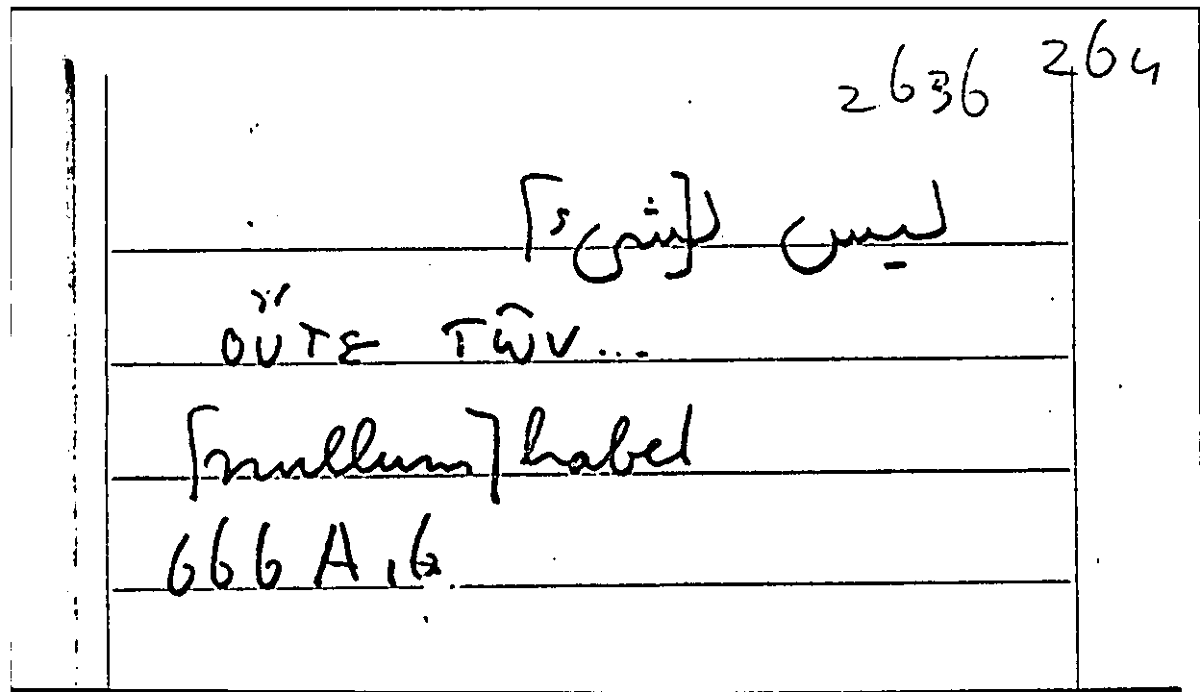 2636 264
ليس ل[شيء]
οὔτε τῶν...
[nullum] habet
666 A,